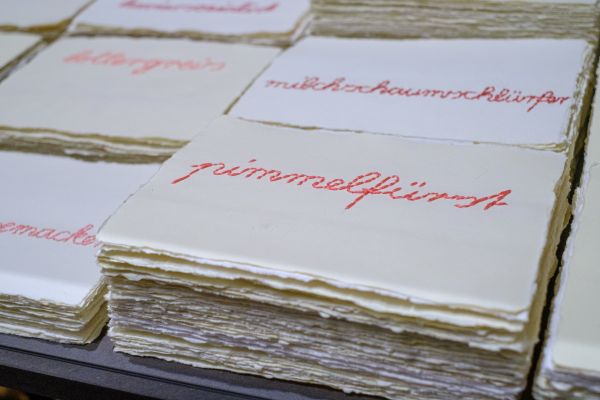 lottergreis
milchschaumschlürfer
pimmelfürst
emacker